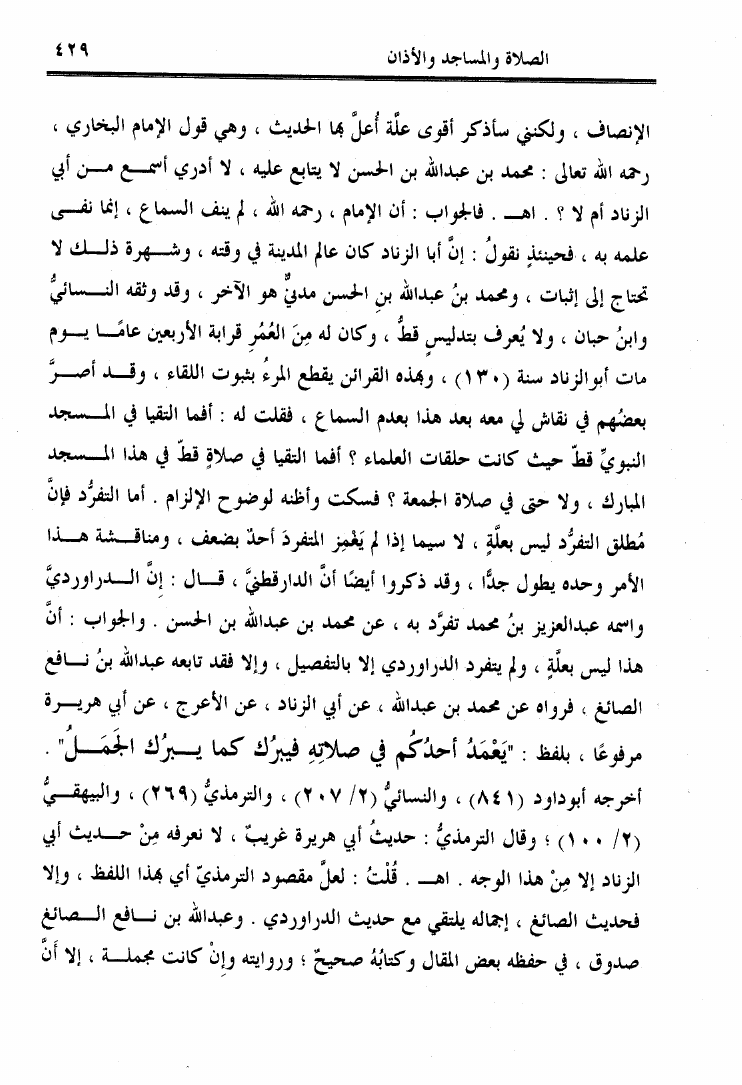 الصلاة والمساجد والأذان ٤٢٩
الإنصاف ، ولكنني سأذكر أقوى علّة أُعلَّ بها الحديث ، وهي قول الإمام البخاري ،
رحمه الله تعالى : محمد بن عبدالله بن الحسن لا يتابع عليه ، لا أدري أسمع من أبي
الزناد أم لا ؟ . اهـ . فالجواب : أن الإمام ، رحمه الله ، لم ينف السماع ، إنما نفى
علمه به ، فحينئذٍ نقولُ : إنَّ أبا الزناد كان عالم المدينة في وقته ، وشهرة ذلك لا
تحتاج إلى إثبات ، ومحمد بنُ عبدالله بنِ الحسن مدنيٌّ هو الآخر ، وقد وثقه النسائيُّ
وابنُ حبان ، ولا يُعرف بتدليسٍ قطُّ ، وكان له مِنَ العُمُرِ قرابة الأربعين عامًا يوم
مات أبوالزناد سنة (١٣٠) ، وبهذه القرائن يقطع المرءُ بثبوت اللقاء ، وقد أصرَّ
بعضُهم في نقاش لي معه بعد هذا بعدم السماع ، فقلت له : أفما التقيا في المسجد
النبويِّ قطّ حيث كانت حلقات العلماء ؟ أفما التقيا في صلاةٍ قطّ في هذا المسجد
المبارك ، ولا حتى في صلاة الجمعة ؟ فسكت وأظنه لوضوح الإلزام . أما التفرُّد فإنَّ
مُطلق التفرُّد ليس بعلَّةٍ ، لا سيما إذا لم يَغْمِز المتفردَ أحدٌ بضعف ، ومناقشة هذا
الأمر وحده يطول جدًّا ، وقد ذكروا أيضًا أنَّ الدارقطنيَّ ، قال : إنَّ الدراورديَّ
واسمه عبدالعزيز بنُ محمد تفرَّد به ، عن محمد بن عبدالله بن الحسن . والجواب : أنَّ
هذا ليس بعلَّةٍ ، ولم يتفرد الدراوردي إلا بالتفصيل ، وإلا فقد تابعه عبدالله بنُ نافع
الصائغ ، فرواه عن محمد بن عبدالله ، عن أبي الزناد ، عن الأعرج ، عن أبي هريرة
مرفوعًا ، بلفظ : "يَعْمَدُ أحدُكُم في صلاتِهِ فيبرُك كما يبرُك الجَمَلُ" .
أخرجه أبوداود (٨٤١) ، والنسائيُّ (٢/ ٢٠٧) ، والترمذيُّ (٢٦٩) ، والبيهقيُّ
(٢/ ١٠٠) ؛ وقال الترمذيُّ : حديثُ أبي هريرة غريبٌ ، لا نعرفه مِنْ حديث أبي
الزناد إلا مِنْ هذا الوجه . اهـ . قُلْتُ : لعلَّ مقصود الترمذيّ أي بهذا اللفظ ، وإلا
فحديث الصائغ ، إجماله يلتقي مع حديث الدراوردي . وعبدالله بن نافع الصائغ
صدوق ، في حفظه بعض المقال وكتابُهُ صحيحٌ ؛ وروايته وإنْ كانت مجملة ، إلا أنَّ